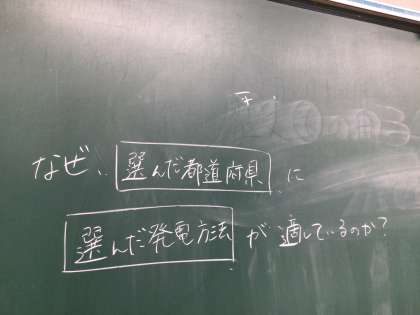 なぜ、選んだ都道府県に
選んだ発電方法が適しているのか?